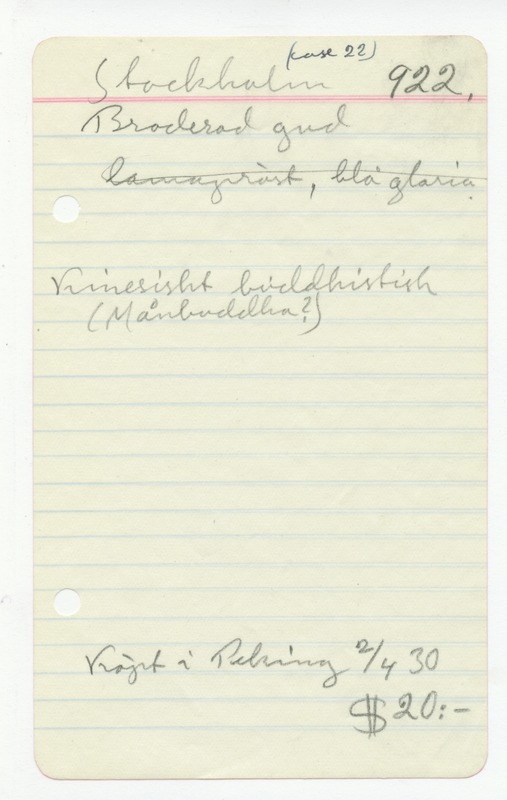 (case 22)
Stockholm 922.
Broderad gud
lamapräst, blå gloria
Kinesiskt buddhistisk
(Månbuddha?)
Köpt i Peking 2/4 30
$20:-